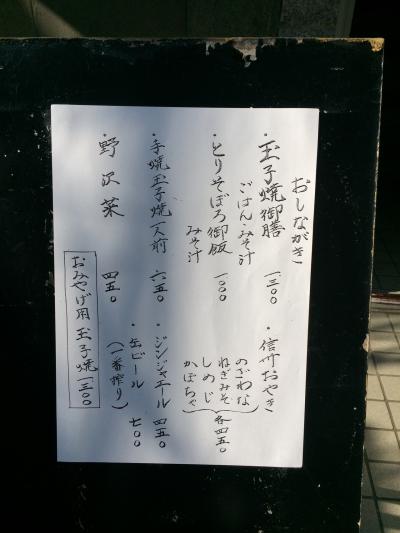 おしながき
・玉子焼御膳 一三〇〇
ごはん・みそ汁
・とりそぼろ御飯 一〇〇〇
みそ汁
・手焼玉子焼一人前 六五〇
・野沢菜 四五〇
・信州おやき
のざわな
ねぎみそ
しめじ
かぼちゃ
各四五〇
・ジンジャエール 四五〇
・缶ビール 七〇〇
(一番搾り)
おみやげ用玉子焼一三〇〇